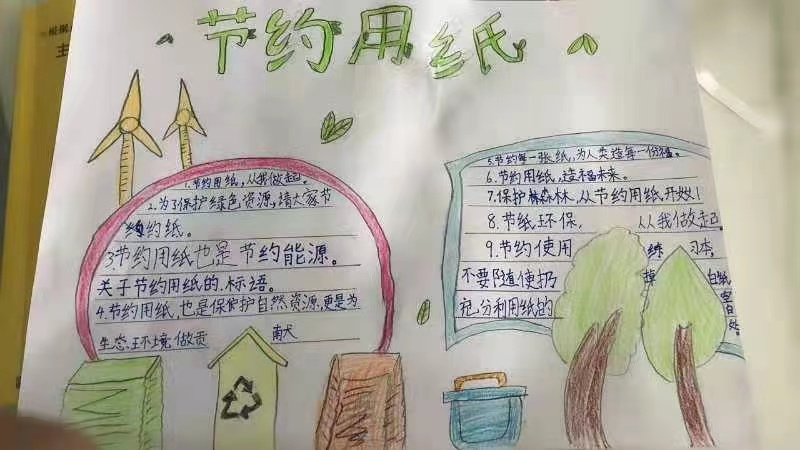 节约用纸
1.节约用纸，从我做起。
2.为了保护绿色资源，请大家节
约纸。
3.节约用纸也是节约能源。
关于节约用纸的.标语。
4.节约用纸，也是保护自然资源，更是为
生态环境做贡 献
5.节约每一张纸，为人类造每一份福。
6.节约用纸，造福未来。
7.保护森林，从节约用纸开始！
8.节纸环保， 从我做起。
9.节约使用 练 习本，
不要随便扔 掉 白纸
充分利用纸的 空白处